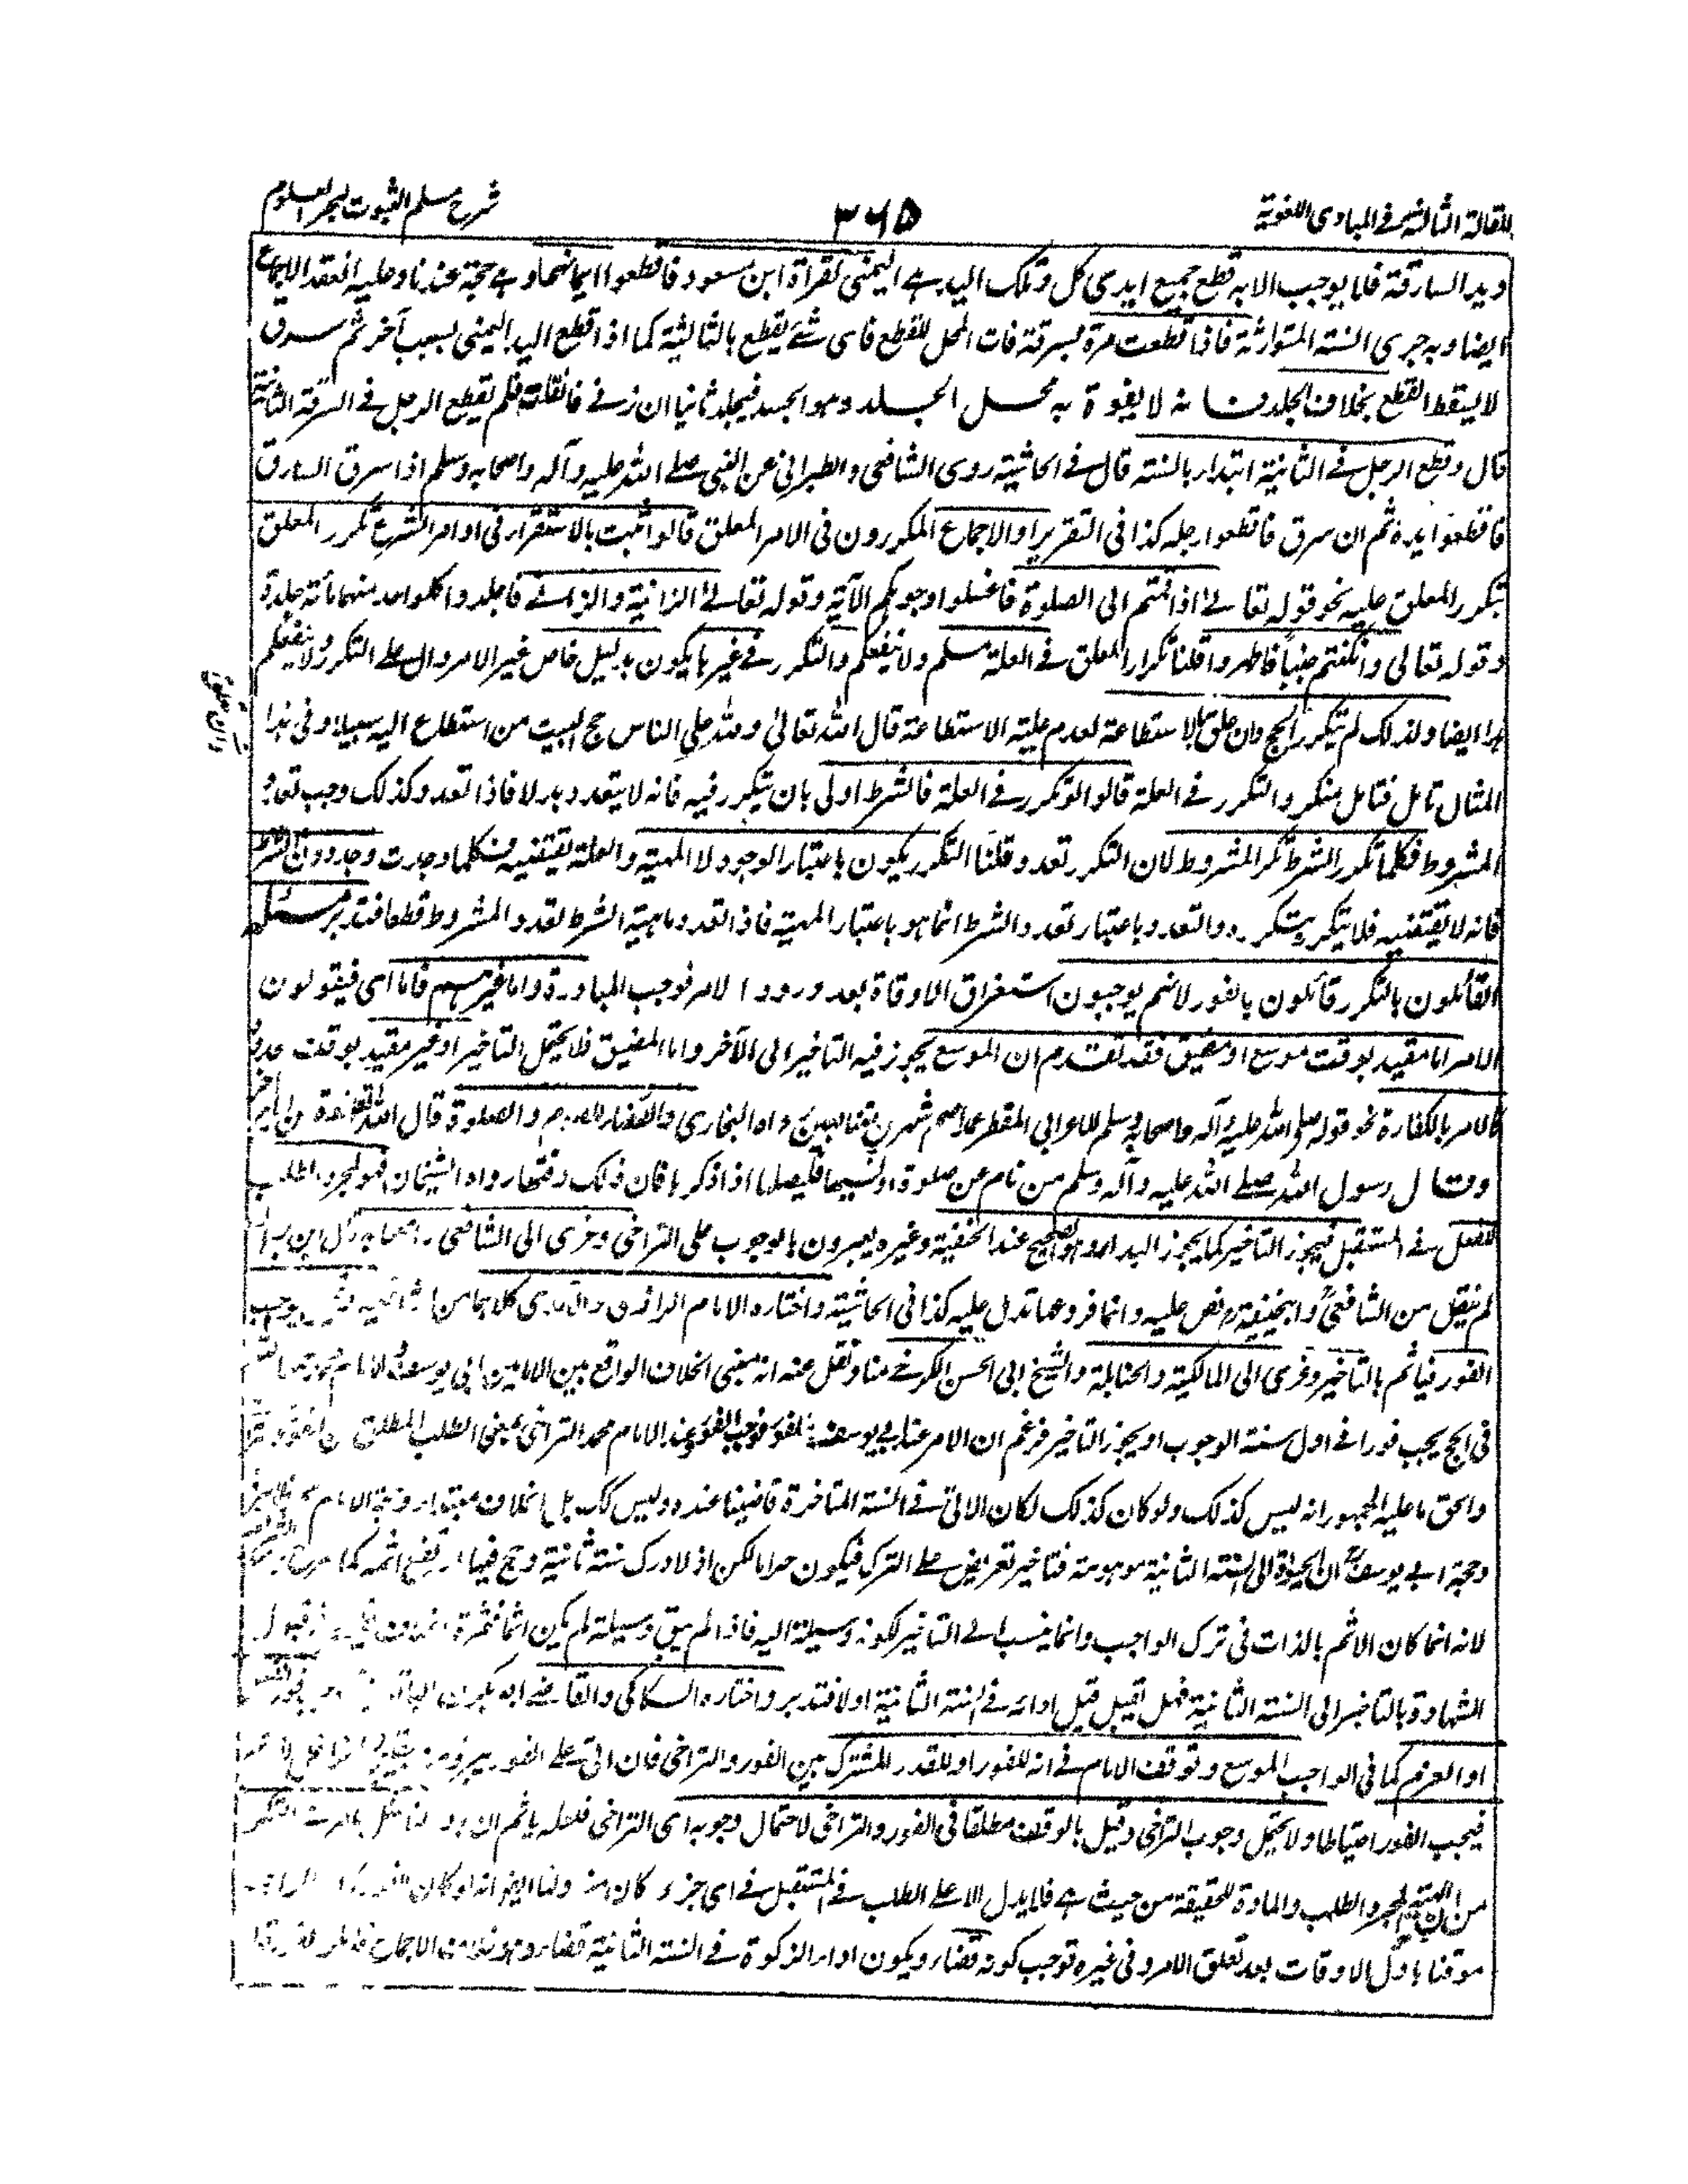 المقالة الثالثة في المبادى اللغوية
٣٦٥
شرح مسلم الثبوت لبحر العلوم
ويد السارقة فلما يوجب الا به قطع جميع ايدى كل وتلك اليد هى اليمنى لقراءة ابن مسعود فاقطعوا ايمانهما وهى حجة عندنا وعليه انعقد الاجماع
ايضا وبه جرى السنة المتوارثة فاذا قطعت مرة بسرقة فات المحل للقطع فاى شئ يقطع بالثالثة كما اذا قطع اليد اليمنى بسبب آخر ثم سرق
لا يسقط القطع بخلاف الجلد فانه لا يفوة به محل الجلد وهو الجسد فيجلد ثانيا ان زنى فان قلت فلم يقطع الرجل فى السرقة الثانية
قال وقطع الرجل فى الثانية ابتداء بالسنة قال فى الحاشية روى الشافعى والطبرانى عن النبى صلى الله عليه وآله واصحابه وسلم اذا سرق السارق
فاقطعوا يده ثم ان سرق فاقطعوا رجله كذا فى التقرير او الاجماع المكررون فى الامر المعلق قالوا ثبت بالاستقراء فى اوامر الشرع تكرر المعلق
بتكرر المعلق عليه نحو قوله تعالى اذا قمتم الى الصلوة فاغسلوا وجوهكم الآية وقوله تعالى الزانية والزانى فاجلدوا كل واحد منهما مائة جلدة
وقوله تعالى وان كنتم جنبا فاطهروا قلنا تكرار المعلق فى العلة مسلم ولا ينفعكم والتكرر فى غيرها يكون بدليل خاص غير الامر دال على التكرر ولا ينفعكم
هذا ايضا ولذلك لم يتكرر الحج وان علق بالاستطاعة لعدم علية الاستطاعة قال الله تعالى ولله على الناس حج البيت من استطاع اليه سبيلا وفى هذا
المثال تامل فتامل منكر والتكرر فى العلة قالوا لو تكرر فى العلة فالشرط اولى بان يتكرر فيه فانه لا يتعدد بدلا فاذا تعدد وكذلك وجب تعدد
المشروط فكلما تكرر الشرط تكرر المشروط لان التكرر تعدد وقلنا التكرر يكون باعتبار الوجود لا المهية والعلة يقتضيه فكلما وجدت وجد دون الشرط
فانه لا يقتضيه فلا يتكرر بتكرره والتعدد باعتبار تعدد الشرط انما هو باعتبار المهية فاذا تعدد ماهية الشرط تعدد المشروط قطعا فتدبر مسئلة
القائلون بالتكرر قائلون بالفور لانهم يوجبون استغراق الاوقاة بعد ورود الامر فوجب المبادرة واما غيرهم فاما اى فيقولون
الامر اما مقيد بوقت موسع او مضيق فقد تقدم ان الموسع يجوز فيه التاخير الى الآخر واما المضيق فلا يحتمل التاخير او غير مقيد بوقت محدود
كالامر بالكفارة نحو قوله صلى الله عليه وآله واصحابه وسلم للاعرابى المفطر عمدا صم شهرين متتابعين رواه البخارى والقضاء للصوم والصلوة قال الله تعالى فعدة من ايام اخر
وقال رسول الله صلى الله عليه وآله وسلم من نام عن صلوة او نسيها فليصلها اذا ذكرها فان ذلك وقتها رواه الشيخان فهو لمجرد الطلب
للفعل فى المستقبل فيجوز التاخير كما يجوز البدار وهو الصحيح عند الحنفية وغيره يعبرون بالوجوب على التراخى وعزى الى الشافعى واصحابه قال ابن برهان
لم ينقل من الشافعى وابى حنيفة نص عليه وانما فروعهما تدل عليه كذا فى الحاشية واختاره الامام الرازى والآمدى كلاهما من الشافعية وقيل يوجب
الفور فياثم بالتاخير وعزى الى المالكية والحنابلة والشيخ ابى الحسن الكرخى منا ونقل عنه انه مبنى الخلاف الواقع بين الامامين ابى يوسف والامام محمد
فى الحج يجب فورا فى اول سنة الوجوب او يجوز التاخير فزعم ان الامر عند ابى يوسف للفور فوجب الفور عند الامام محمد التراخى بمعنى الطلب المطلق
والحق ما عليه الجمهور انه ليس كذلك ولو كان كذلك لكان الاتى فى السنة المتاخرة قاضيا عنده وليس كك بل الخلاف مبتدأ وحجة الامام محمد
وحجة ابى يوسف ان الحيوة الى السنة الثانية موهومة فتاخير تعريض على الترك فيكون حراما لكن اذا ادرك سنة ثانية وحج فيها ارتفع اثمه
لانه انما كان الاثم بالذات فى ترك الواجب وانما ينسب الى التاخير لكونه وسيلة اليه فاذا لم يبق وسيلة لم يكن اثما فثمرة الخلاف قبول
الشهادة بالتاخير الى السنة الثانية فهل تقبل قبل ادائه فى السنة الثانية او لا فتدبر واختاره السكاكى والقاضى ابو بكر
او العزم كما فى الواجب الموسع وتوقف الامام فى انه للفور او للقدر المشترك بين الفور والتراخى فان اتى على الفور
فيجب الفور احتياطا ولا يحتمل وجوب التراخى وقيل بالوقف مطلقا فى الفور والتراخى لاحتمال وجوبه اى التراخى فلعله ياثم ان بادر لنا
من ان الهيئة لمجرد الطلب والمادة للحقيقة من حيث هى فلا يدل الا على الطلب فى المستقبل فى اى جزء كان منه ولنا ايضا انه لو كان
موقتا باول الاوقات بعد تعلق الامر وفى غيره توجب كونه قضاء ويكون اداء الزكوة فى السنة الثانية قضاء وهو خلاف الاجماع